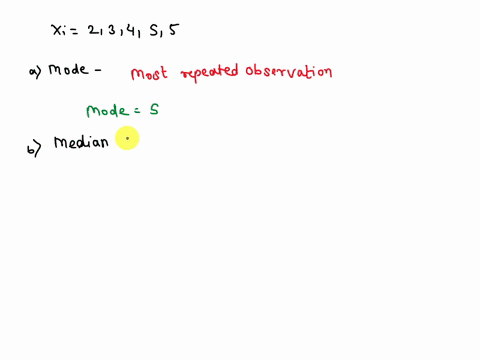 xi = 2, 3, 4, 5, 5
a) Mode - Most repeated observation
Mode = 5
b) Median